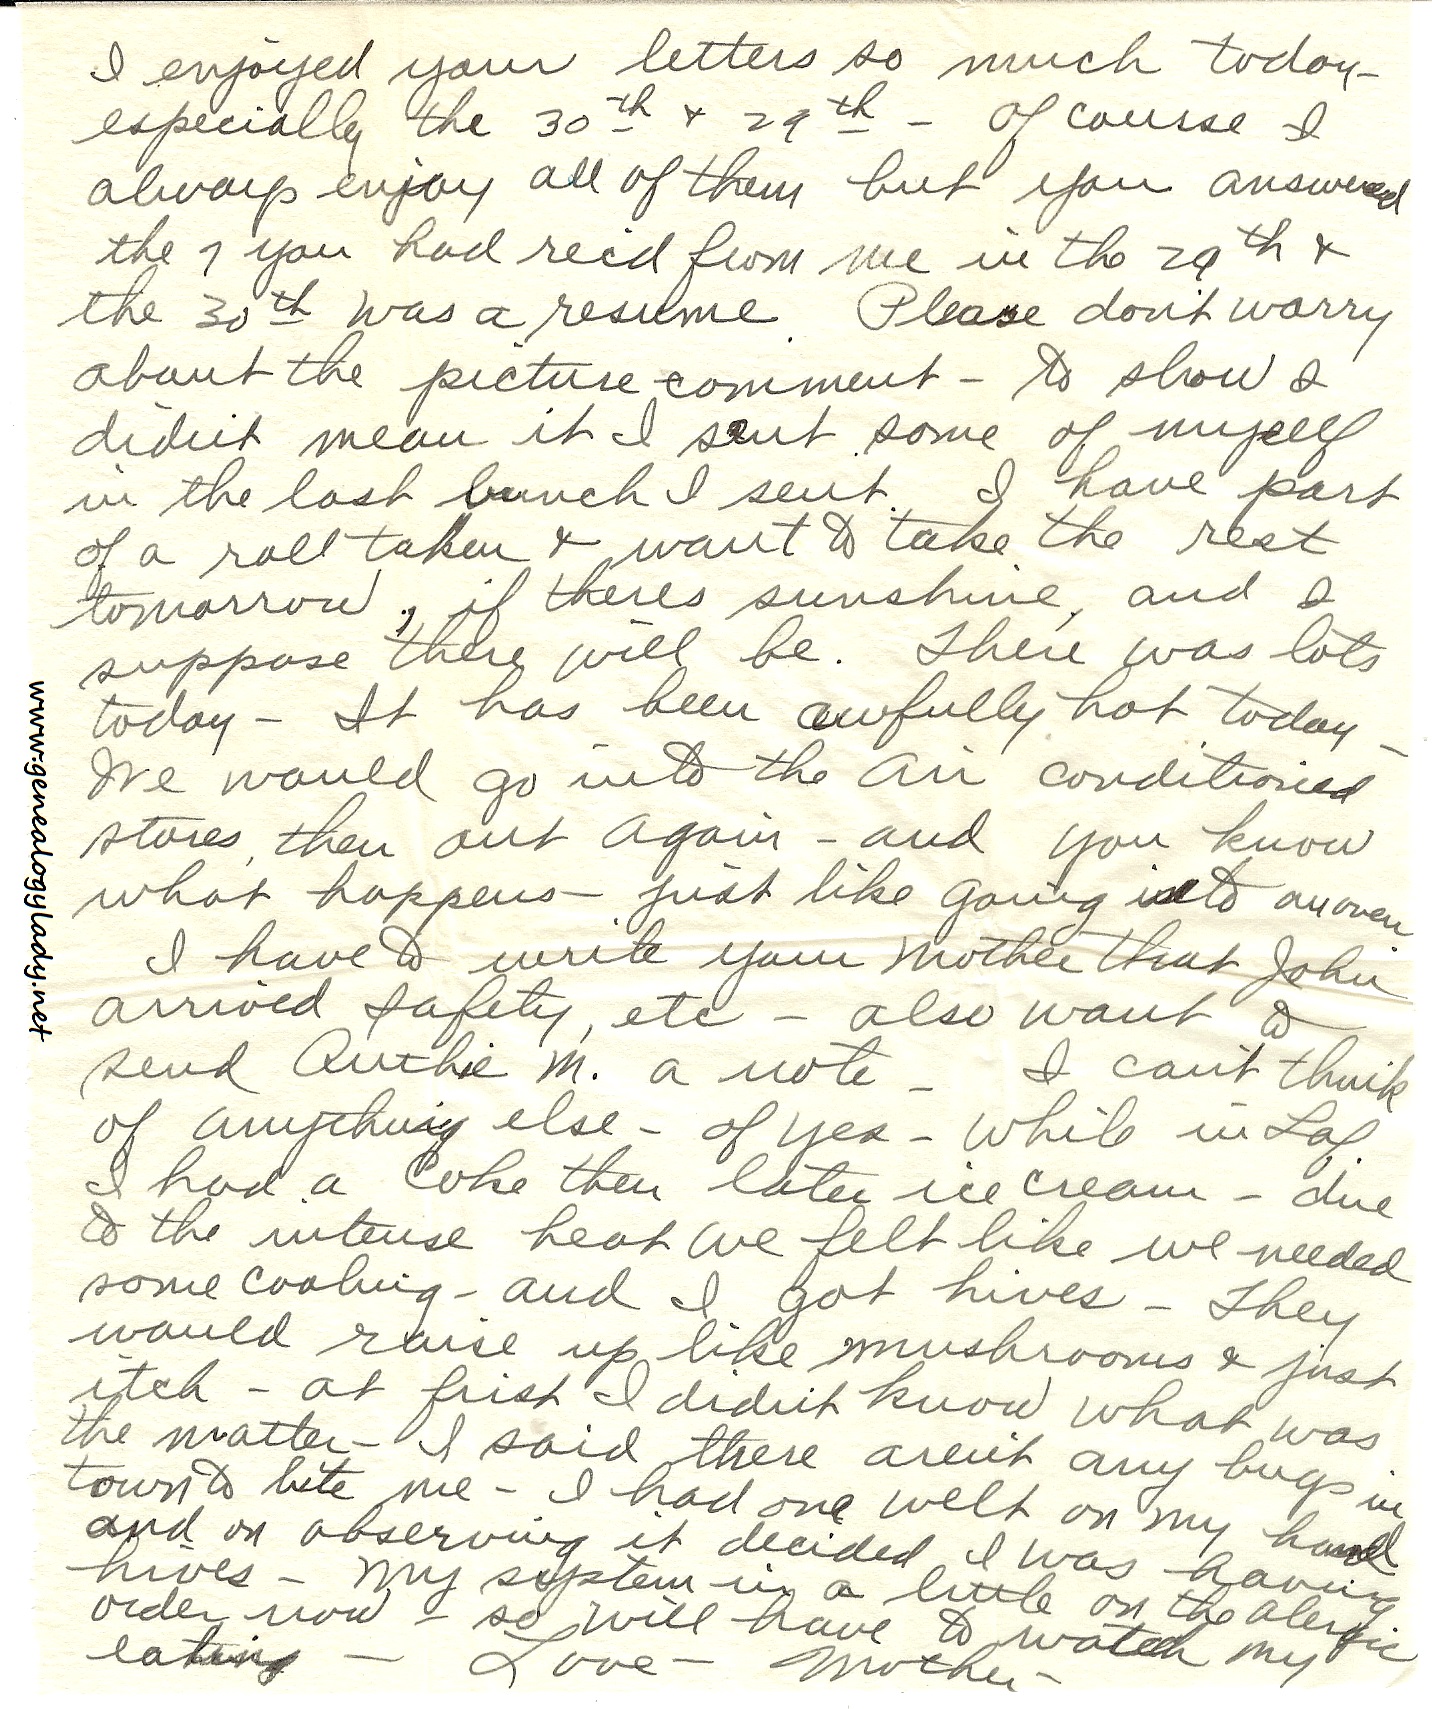 I enjoyed your letters so much today -
especially the 30th & 29th - Of course I
always enjoy all of them but you answered
the 7 you had rec'd from me in the 29th &
the 30th was a resume. Please don't worry
about the picture comment - to show I
didn't mean it I sent some of myself
in the last bunch I sent. I have part
of a roll taken & want to take the rest
tomorrow, if theres sunshine, and I
suppose there will be. There was lots
today - It has been awfully hot today -
We would go into the air conditioned
stores, then out again - and you know
what happens - just like going into an oven
I have to write your Mother that John
arrived safety, etc - also want to
send Authie M. a note - I can't think
of anything else - of yes - while in Laf
I had a Coke then later ice cream - due
to the intense heat we felt like we needed
some cooling - and I got hives - They
would raise up like mushrooms & just
itch - at frist I didn't know what was
the matter - I said there aren't any bugs in
town to bite me - I had one welt on my hand
and on observing it decided I was having
hives - My system in a little on the alergic
order now - so will have to watch my
eating - Love - Mother -
www.genealogylady.net